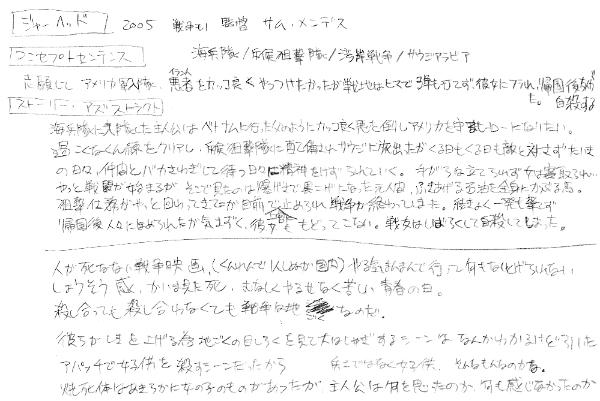 ジャーヘッド 2005 戦争もの 監督 サム・メンデス
コンセプトセンテンス 海兵隊/斥候狙撃隊/湾岸戦争/サウジアラビア
志願して アメリカ軍隊、悪者をカッコ良くやっつけたかったが戦地はヒマで弾も打てず、彼女にフラれ、帰国後友が
た。自殺する
ストーリー アブストラクト
海兵隊に入隊した主人公はベトナムに行った
カッコ良く悪を倒しアメリカを守るヒーローになりたい。
訓練をクリアし、斥候狙撃隊に配備され、サウジに放出たがくる日もくる日も敵と対せずただ
の日々、仲間とバカさわぎして待つ日々に精神をけずられていく。手がらな立てられず女は寝取られ
やっと戦闘が始まるが そこで見たのは爆げきで黒こげになった人間、ふきあげる石油を全身にかぶる馬。
狙撃任務がやっと回ってきたが目前で止められ戦争が終わってしまった。結きょく一発も撃てず
帰国後人々にほめられたが気まずく、彼女ももどってこない。戦友はしばらくして自殺してしまった。
人が死なない戦争映画、(くんれんで1人しぬが国内) やる気まんまんで行って何もなしとげられない
しょうそう感、かいま見た死、むなしくやるせなく苦い青春の日。
殺し合っても殺し合わなくても戦争は地ごくなのだ。
彼らがときを上げる為地ごくの日しろくを見て大はしゃぎするシーンはなんかわかるけど引いた
アパッチで女子供を殺すシーンだったから 兵士ではなく女子供、そんなもんなのかな。
焼死体はあきらかに女の子のものがあったが主人公は何を思ったのか、何も感じなかったのか